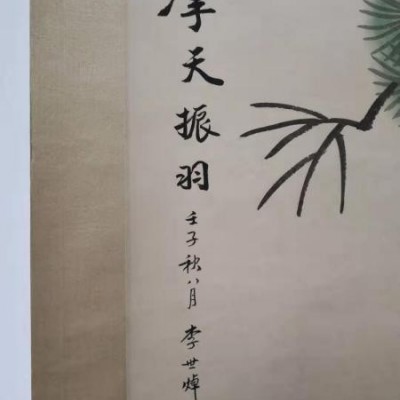 摩天振羽
壬子秋八月李世倬